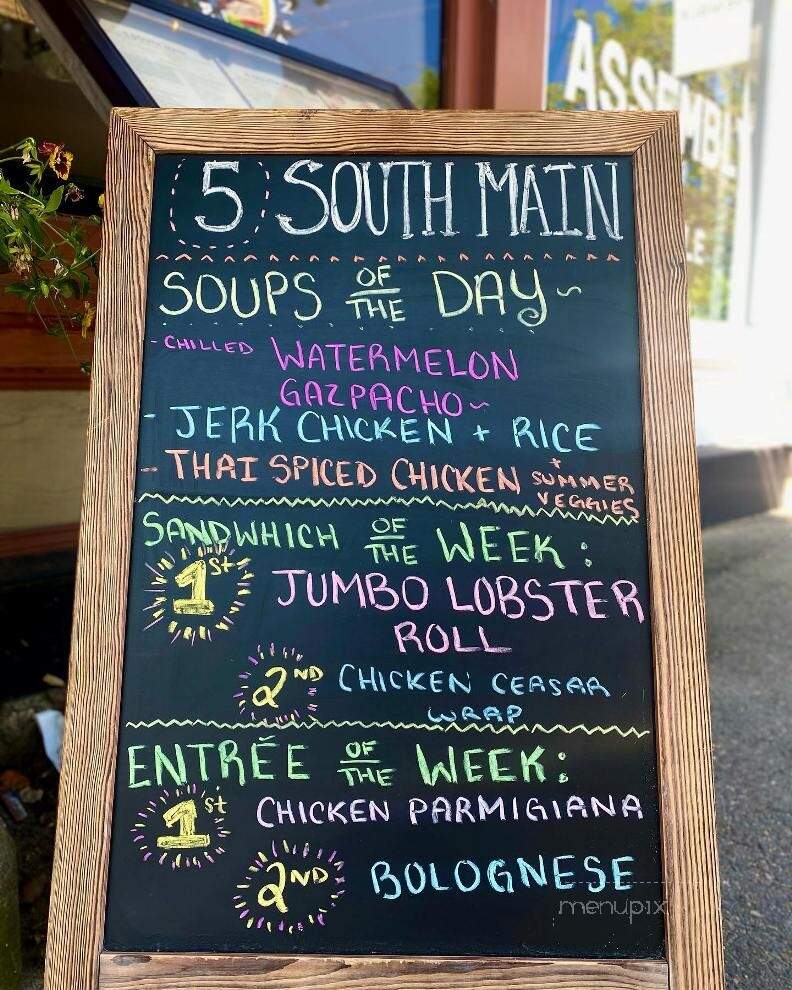 ASSEMBL
LE
5 SOUTH MAIN
SOUPS OF THE DAY~
-CHILLED WATERMELON
GAZPACHO~
- JERK CHICKEN + RICE
- THAI SPICED CHICKEN + SUMMER
VEGGIES
SANDWHICH OF THE WEEK:
1st JUMBO LOBSTER
ROLL
2ND CHICKEN CEASAR
WRAP
ENTRÉE OF THE WEEK:
1st CHICKEN PARMIGIANA
2ND BOLOGNESE
menupix